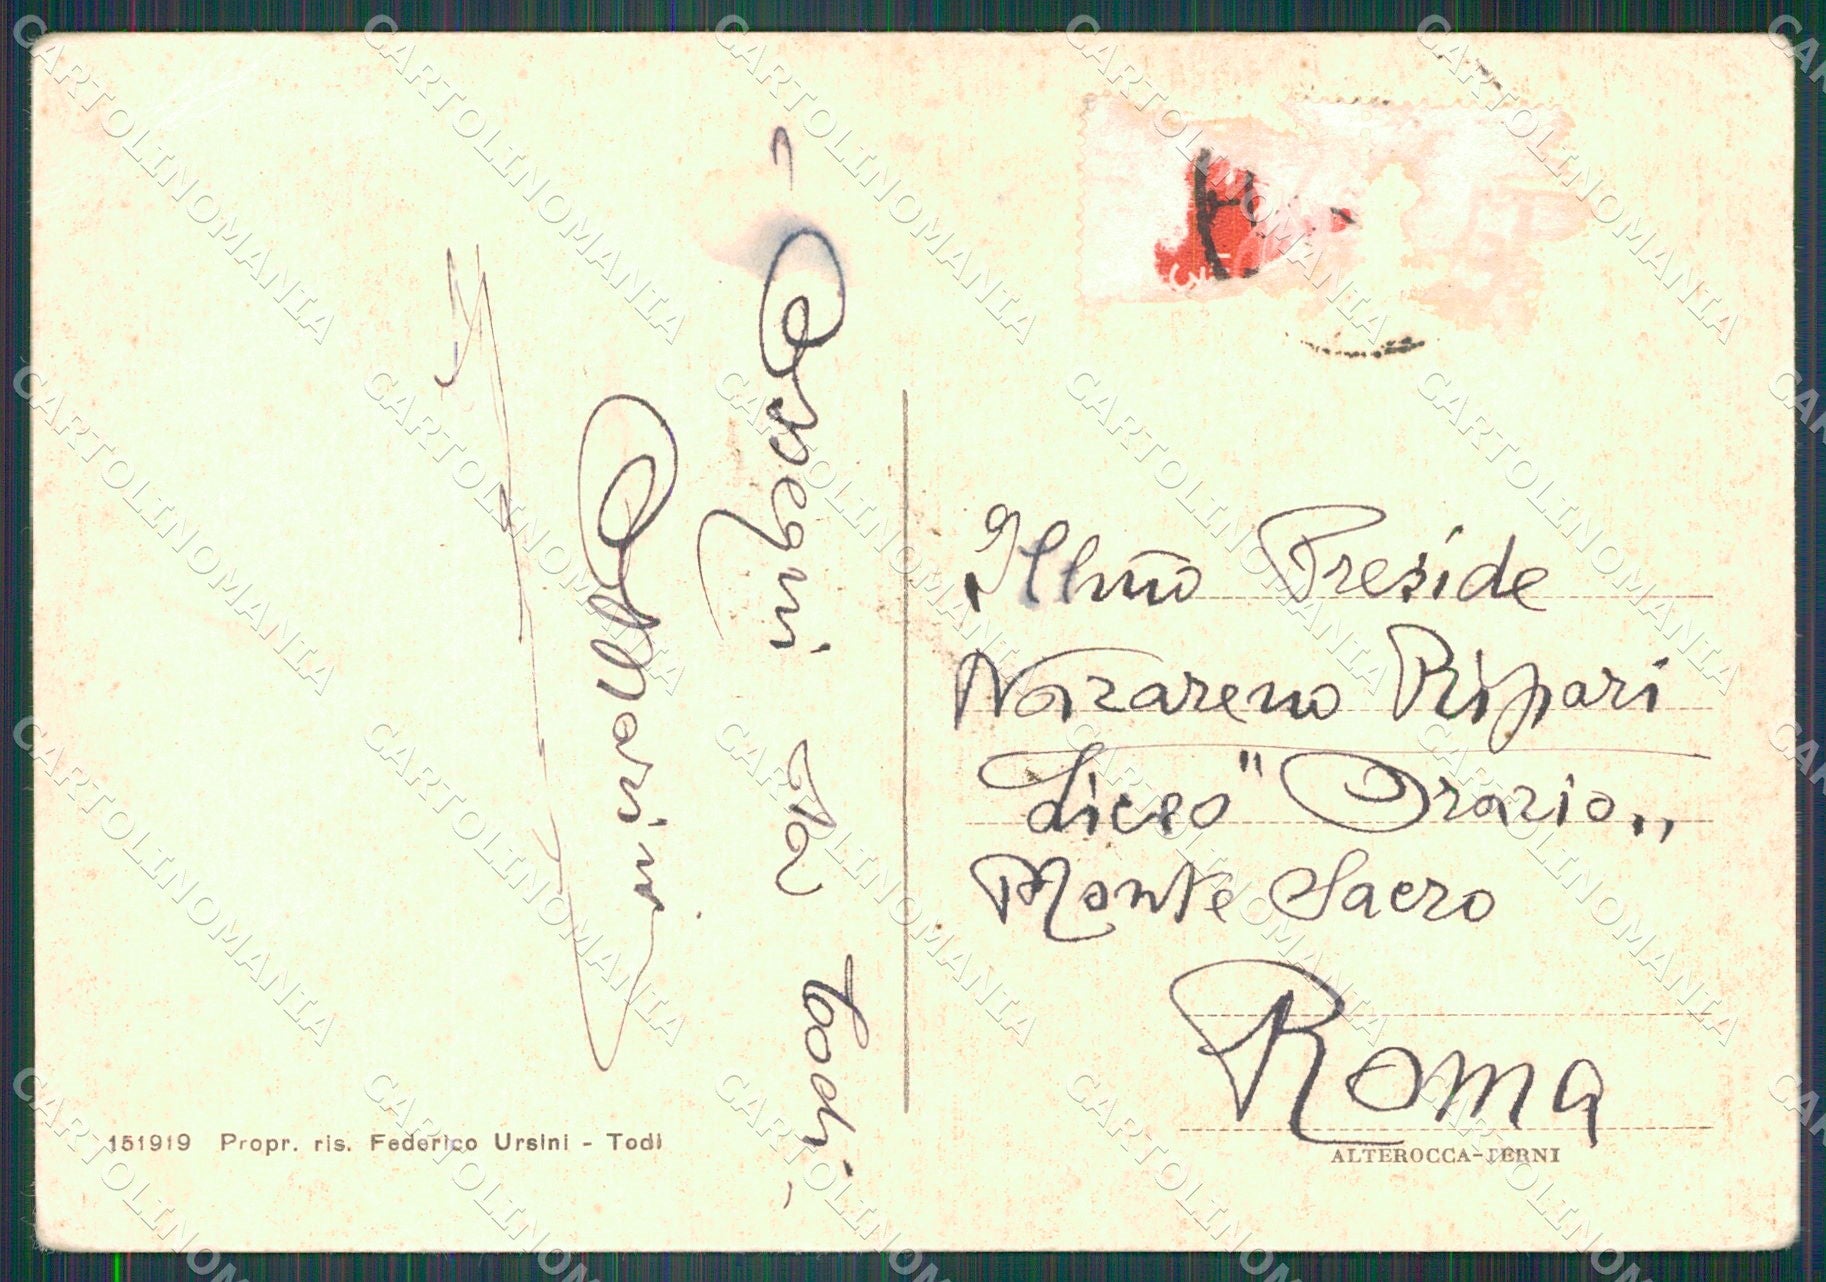 Ossequi da Todi -
Illmo Preside
Nazareno Ripari
Liceo "Orazio„
Monte Sacro
Roma
151919 Propr. ris. Federico Ursini - Todi
ALTEROCCA-TERNI
CARTOLINOMANIA